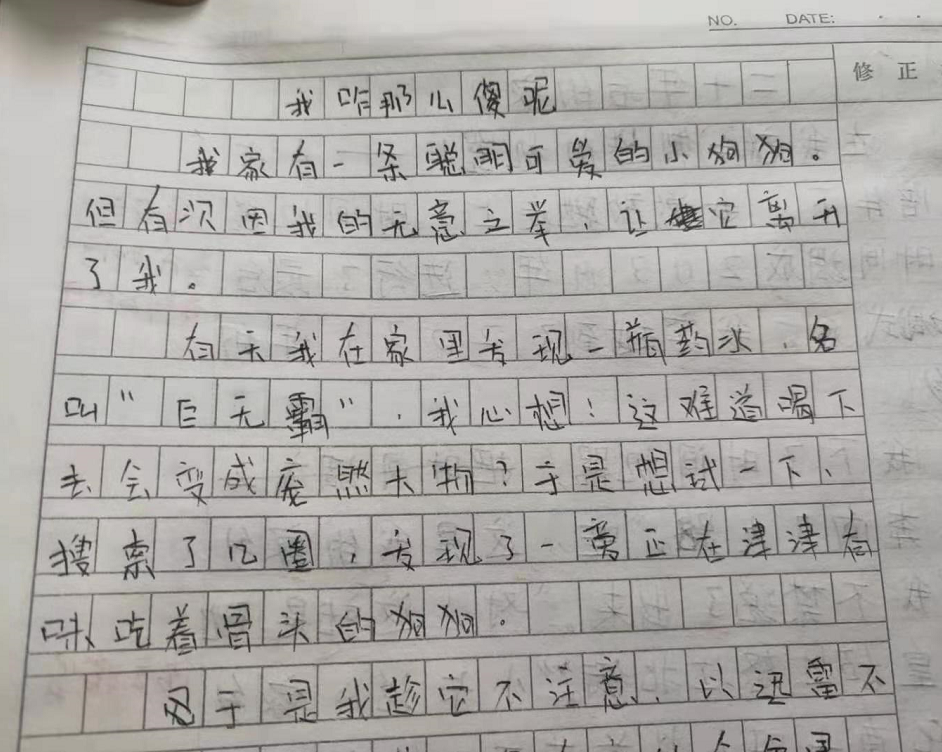 NO. DATE:
修 正
我咋那么傻呢
我家有一条聪明可爱的小狗狗。
但有次因我的无意之举，让它离开
了我。
有天我在家里发现一瓶药水，名
叫“巨无霸”，我心想！这难道喝下
去会变成庞然大物？于是想试一下、
搜索了几圈，发现了一 正在津津有
味吃着骨头的狗狗.
于是我趁它不注意，以迅雷不